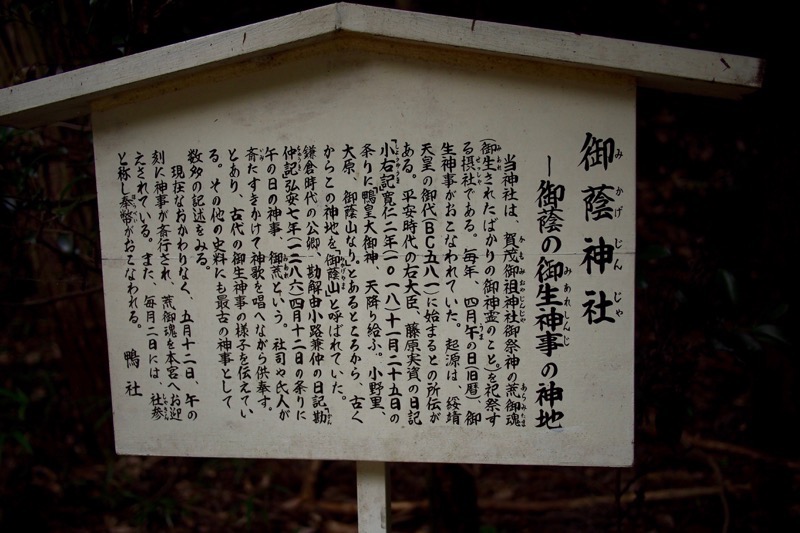 御蔭神社
みかげじんじゃ
―御蔭の御生神事の神地
みあれしんじ
当神社は、賀茂御祖神社御祭神の荒御魂
かもみおやじんじゃ
あらみたま
(御生されたばかりの御神霊のこと。)を祀祭す
みあれ
る摂社である。毎年、四月午の日(旧暦)、御
せっしゃ
うま
生神事がおこなわれていた。起源は、綏靖
天皇の御代(BC五八一)に始まるとの所伝が
ある。平安時代の右大臣、藤原実資の日記
『小右記』寛仁二年(一〇一八)十一月二十五日の
条りに『鴨皇大御神、天降り給ふ。小野里、
大原、御蔭山なり。』とあるところから、古く
からこの神地を「御蔭山」と呼ばれていた。
鎌倉時代の公卿、勘解由小路兼仲の日記『勘
仲記』弘安七年(一二八六)四月十二日の条りに
午の日の神事、御荒という。社司や氏人が
みあれ
斎たすきかけて神歌を唱へながら供奉す。
とあり、古代の御生神事の様子を伝えてい
る。その他の史料にも最古の神事として
数多の記述をみる。
現在なおかわりなく、五月十二日、午の
刻に神事が斎行され、荒御魂を本宮へお迎
えされている。また、毎月二日には、社参
と称し奉幣がおこなわれる。 鴨社